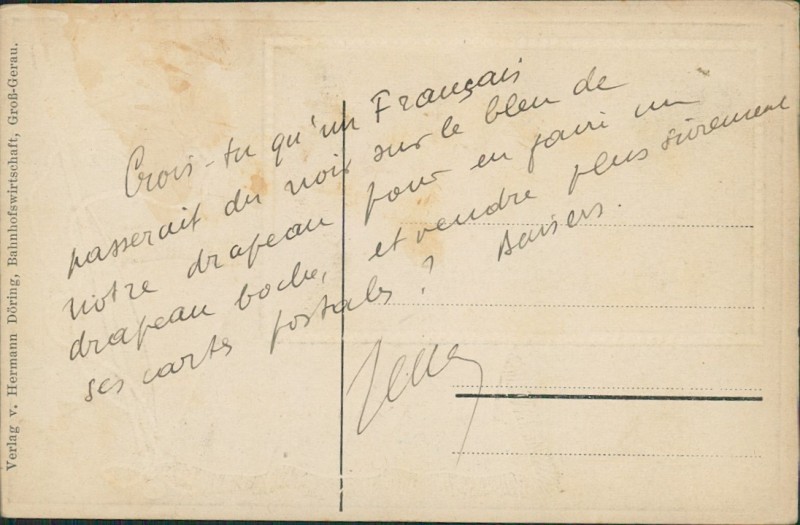 Verlag v. Hermann Döring, Bahnhofswirtschaft, Groß-Gerau.
Crois-tu qu'un Français
passerait du noir sur le bleu de
notre drapeau pour en faire un
drapeau boche, et vendre plus sûrement
ses cartes postales ? Baisers.